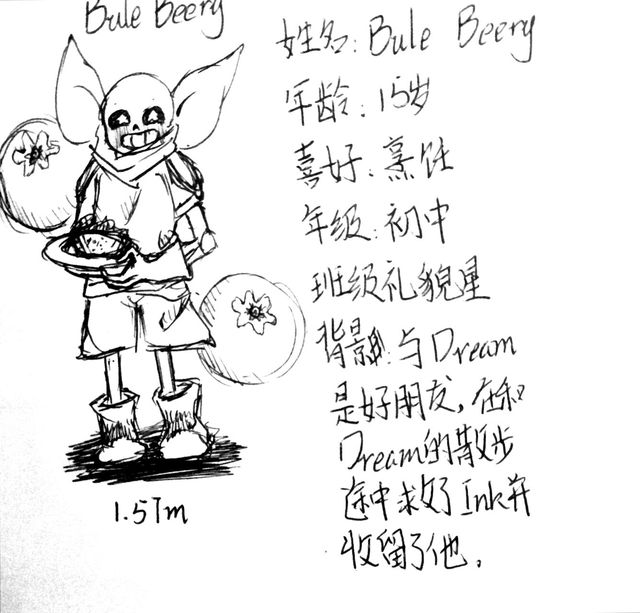 Bule Beery
姓名: Bule Beery
年龄: 15岁
喜好: 烹饪
年级: 初中
班级礼貌星
背景: 与Dream
是好朋友,在和
Dream的散步
途中救了Ink并
收留了他.
1.57m